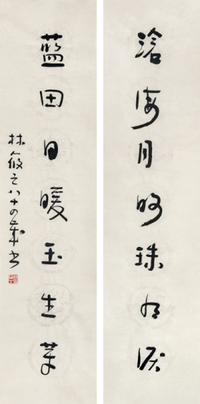 滄海月明珠有淚
藍田日暖玉生煙
林筱之八十四歲書